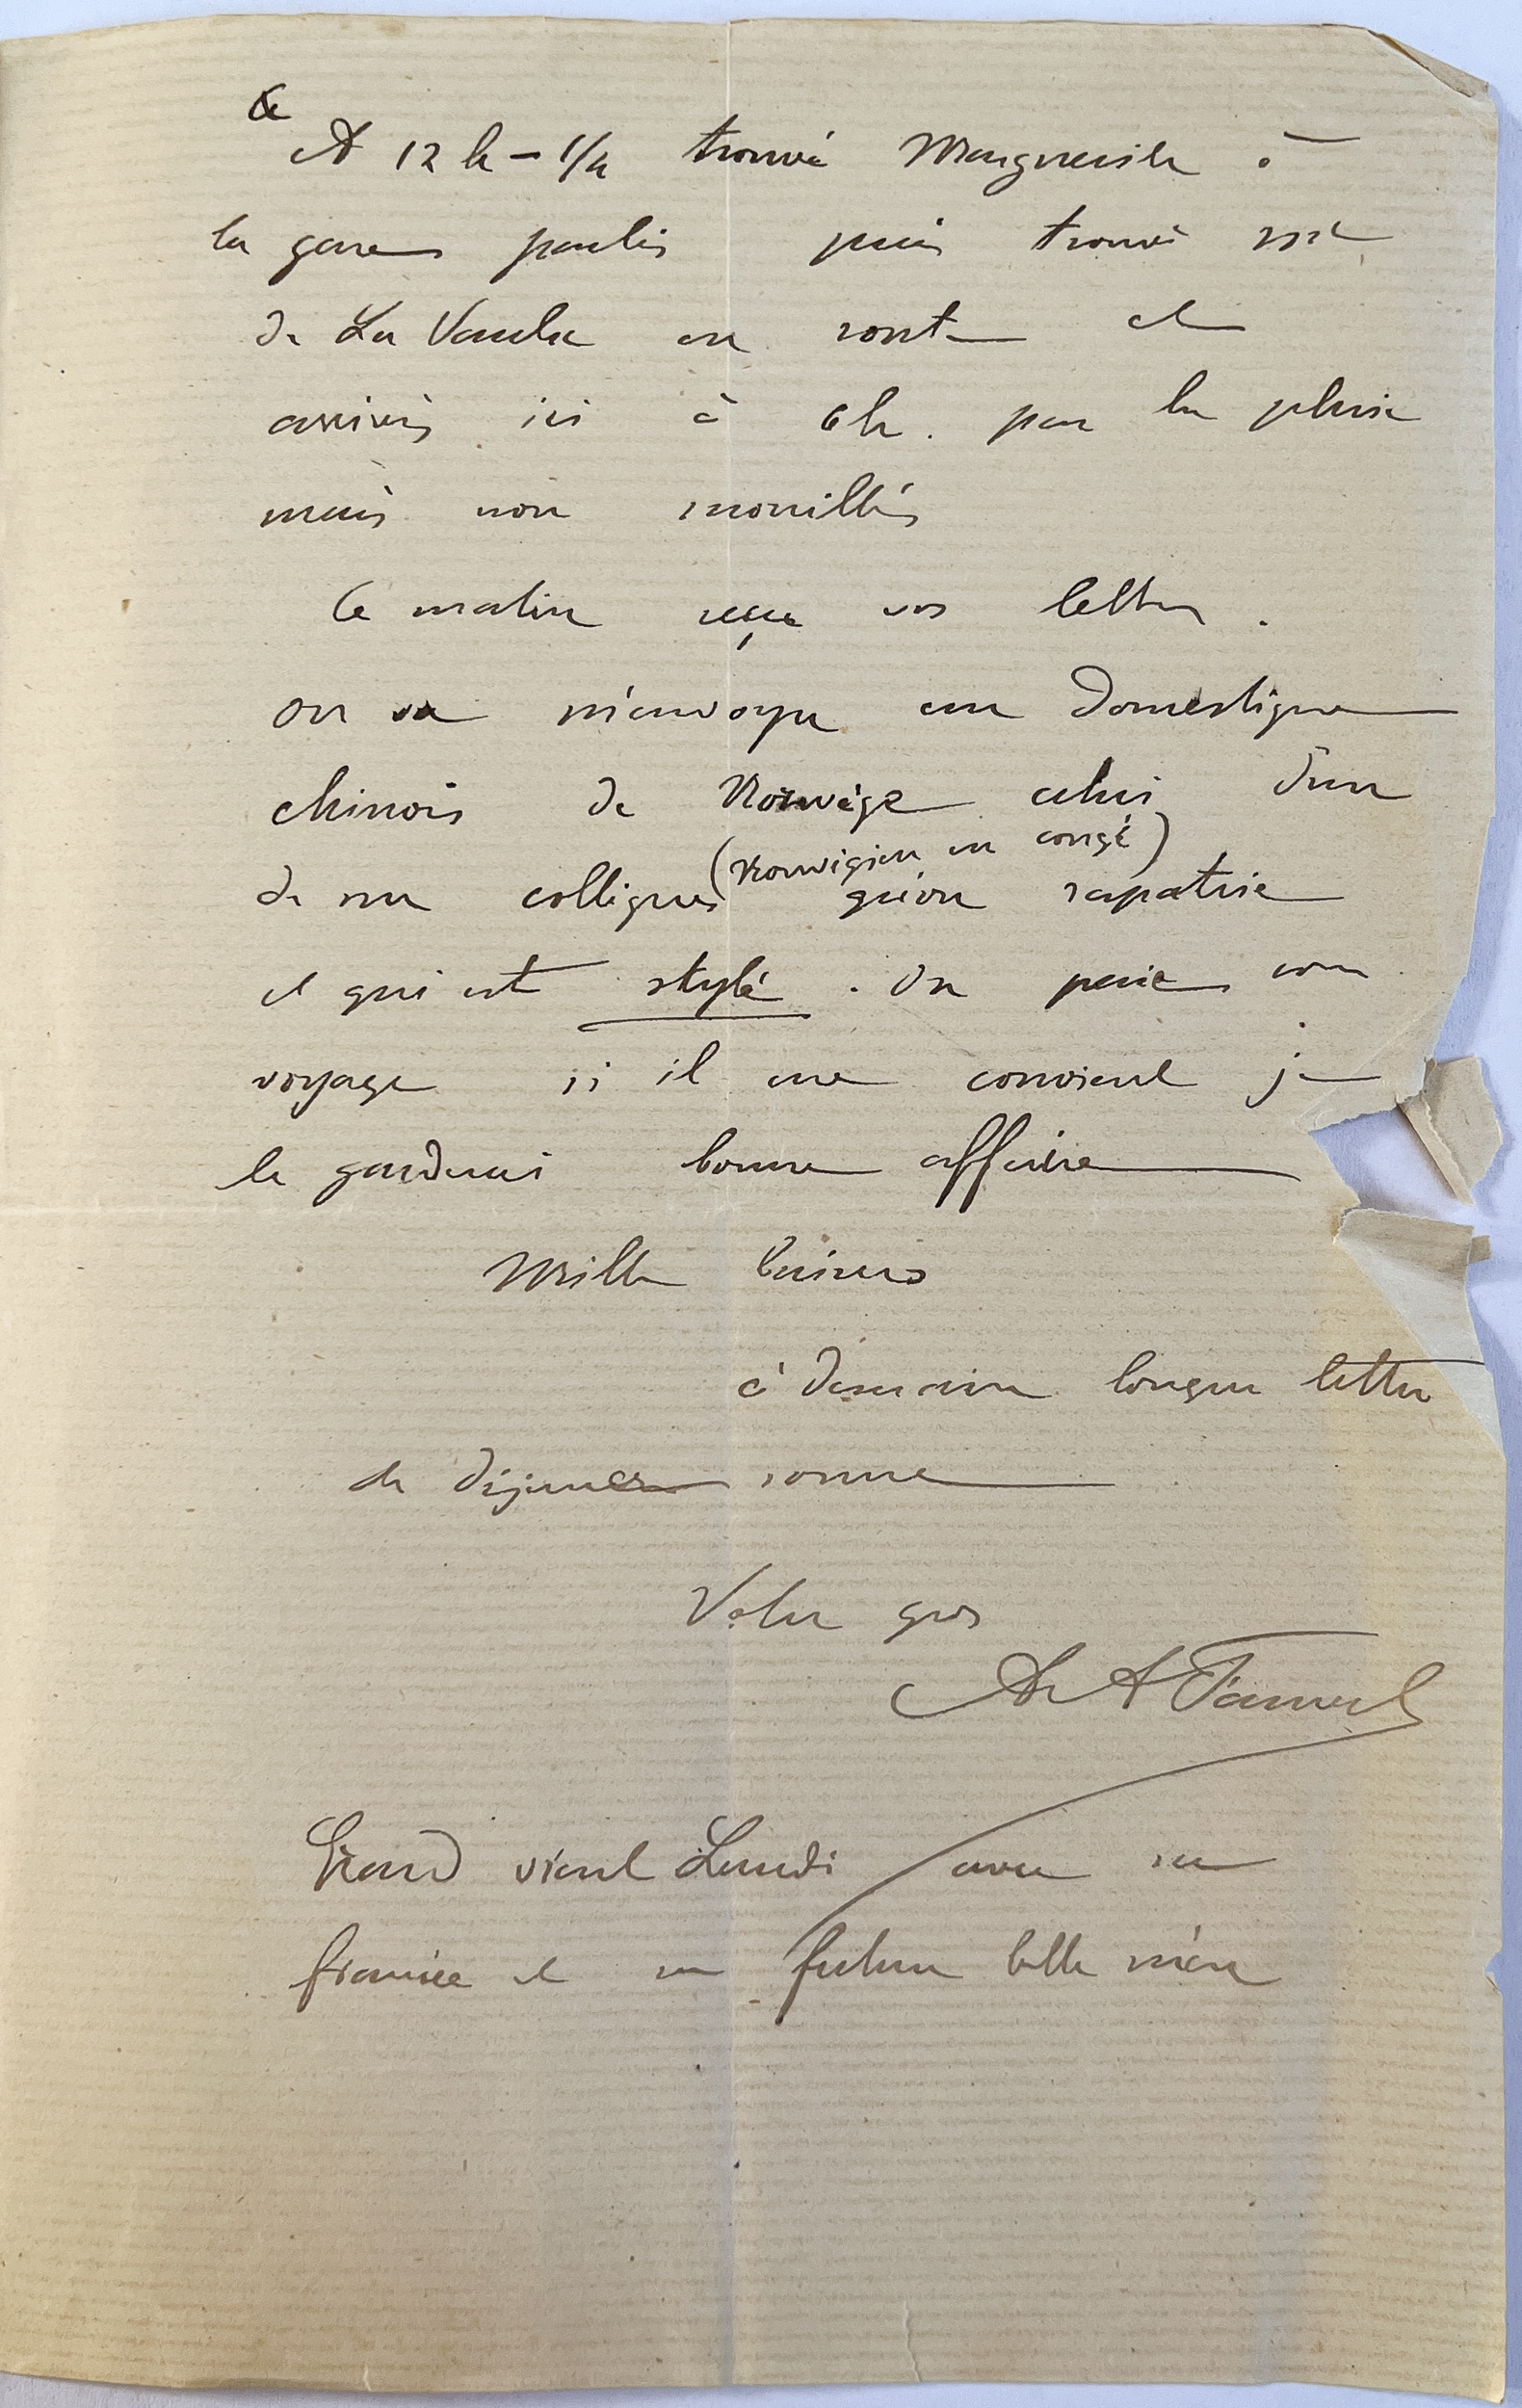 A 12 h - 1/2 trouvé Marguerite à
la gare partis puis trouvé Mr
de La Vaulx en route et
arrivés ici à 6h. par la pluie
mais non mouillés
Ce matin reçu vos lettres.
on va m'envoyer un Domestique
chinois de Norwège celui d'un
(Norwégien en congé)
de nos collègues qu'on rapatrie
et qui est stylé. On paie son
voyage si il me convient je
le garderai bonne affaire
Mille baisers
à demain longue lettre
le déjeuner sonne
Votre gros
Grand vient Lundi avec sa
fiancée et sa future belle mère